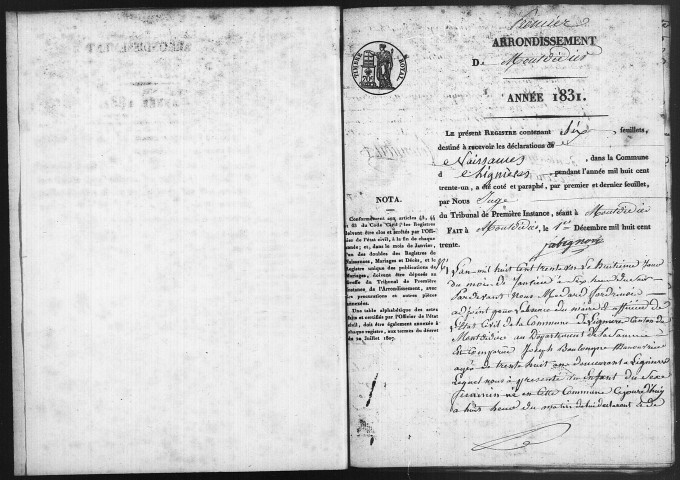 ARRONDISSEMENT
De Montdidier
ANNÉE 1831.
TIMBRE ROYAL
Le présent Registre contenant six feuillets,
destiné à recevoir les déclarations de
Naissances, dans la Commune
d pendant l'année mil huit cent
trente-un, a été coté et paraphé, par premier et dernier feuillet,
par Nous Juge
du Tribunal de Première Instance, séant à Montdidier
Fait à Montdidier, le 1er Décembre mil huit cent
trente.
NOTA.
Conformément aux articles 43, 44
et 68 du Code Civil, les Registres
doivent être clos et arrêtés par l'Offi-
cier de l'état civil, à la fin de chaque
année; et, dans le mois de Janvier,
l'un des doubles des Registres de
Naissances, Mariages et Décès, et le
Registre unique des publications de
Mariages, doivent être déposés au
Greffe du Tribunal de Première
Instance, de l'Arrondissement, avec
les procurations et autres pièces
annexées.
Une table alphabétique des actes
faite et certifiée par l'Officier de l'état
civil, doit être également annexée à
chaque registre, aux termes du décret
du 20 Juillet 1807.
L'an mil huit Cent trente un Le huitième Jour
du mois de Janvier à Six heures du Soir
Pardevant Nous Médard
adjoint pour L'absence du maire & officier de
L'état Civil de la Commune de Lignière Canton de
Montdidier Département de la Somme
Est Comparu Joseph Boulongne Manouvrier
agé de trente huit ans demeurant a Lignières
Lequel nous a présenté un Enfant du Sexe
féminin né en Cette Commune Cejourd'huy
a huit heure du matin de lui déclarant & de